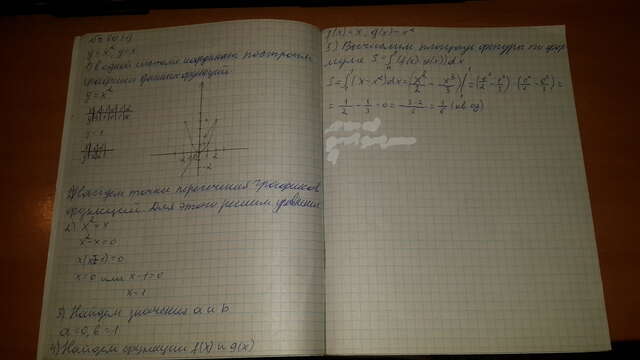 y=x² y=x
1) В одной системе координат построим
графики данных функций
y=x²
y=x
2) Найдем точки пересечения графиков
функций. Для этого решим уравнение
x²=x
x²-x=0
x(x-1)=0
x=0 или x-1=0
x=1
3) Найдем значения a и b
a=0, b=1
4) Найдем функции f(x) и g(x)
f(x)=x, g(x)=x²
5) Вычислим площадь фигуры по фор
муле S=∫(f(x)-g(x))dx
S=∫(x-x²)dx=(x²/2-x³/3)|=(1²/2-1³/3)-(0²/2-0³/3)=
=1/2-1/3-0=3-2/6=1/6 (кв.ед)